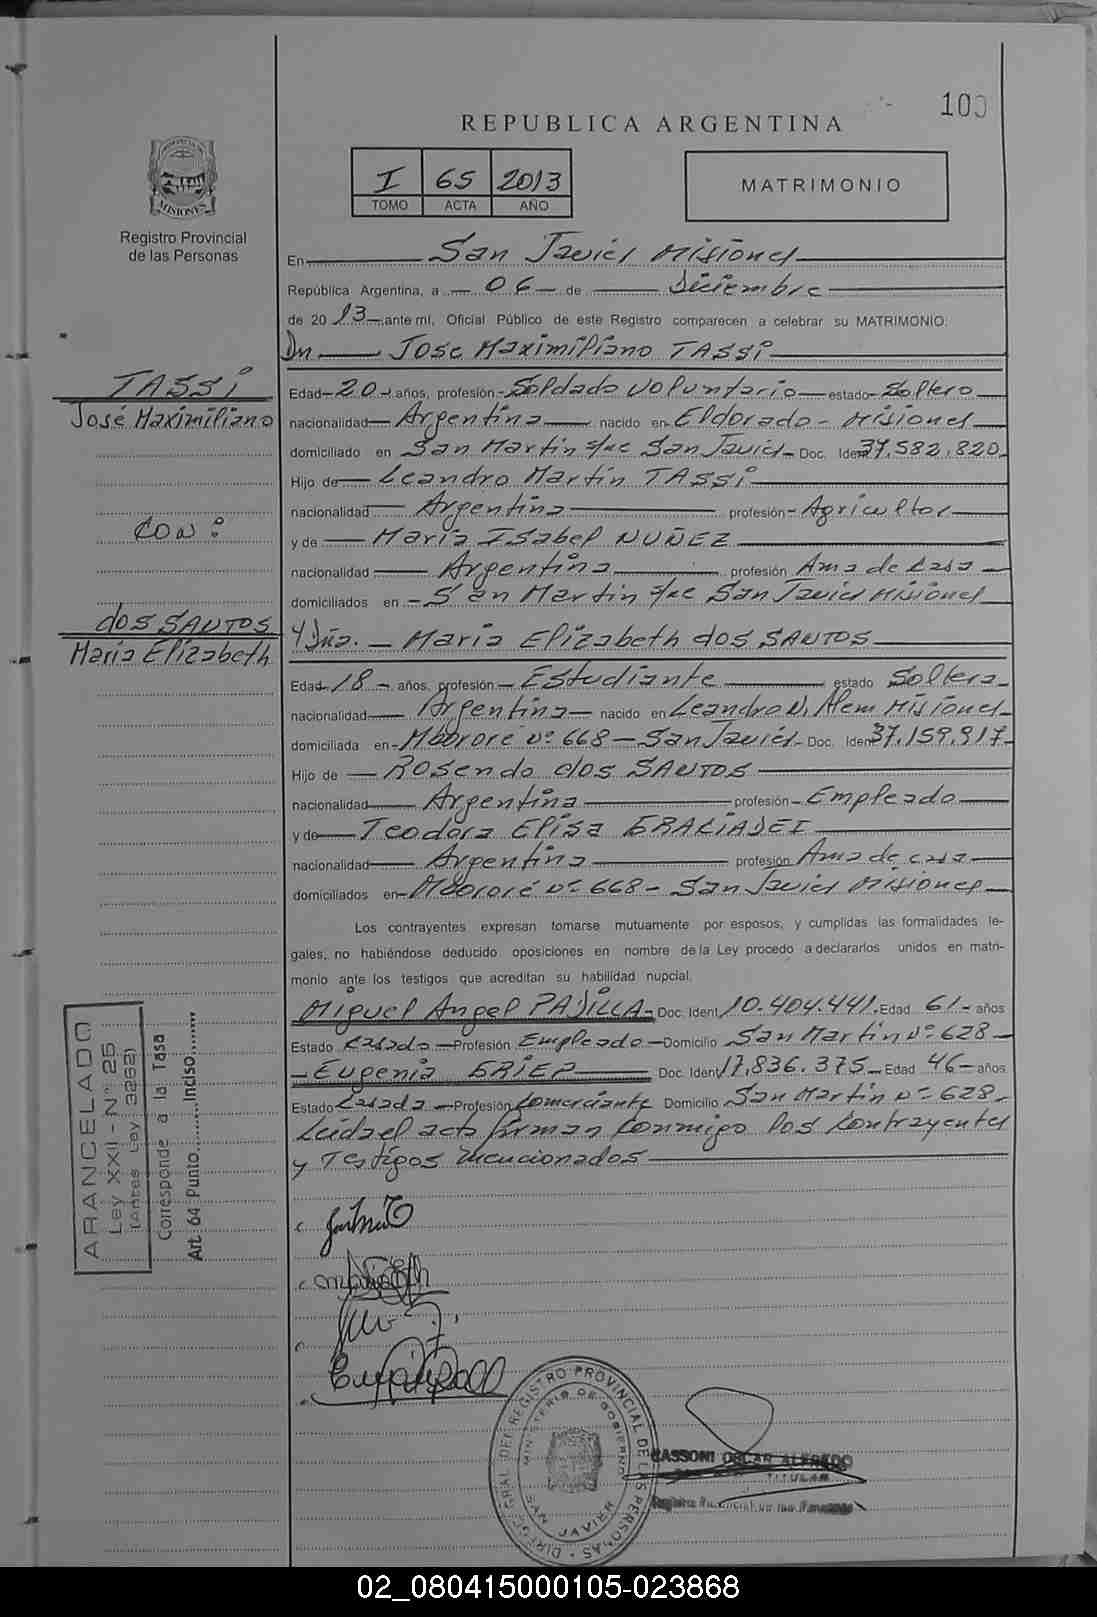 100
REPUBLICA ARGENTINA
I 65 2013
TOMO ACTA AÑO
MATRIMONIO
MISIONES
Registro Provincial
de las Personas
En San Javier Misiones
República Argentina, a 06 de Diciembre
de 2013 ante mí, Oficial Público de este Registro comparecen a celebrar su MATRIMONIO:
Dn. Jose Maximiliano TASSi
TASSi
José Maximiliano
CON:
dos SANTOS
Maria Elizabeth
Edad 20 años, profesión Soldado Voluntario estado Soltero
nacionalidad Argentina nacido en Eldorado - Misiones
domiciliado en San Martin s/nº San Javier Doc. Ident 37.582.820
Hijo de Leandro Martin TASSi
nacionalidad Argentina profesión Agricultor
y de Maria ISabel NUÑEZ
nacionalidad Argentina profesión Ama de Casa
domiciliados en San Martin s/nº San Javier Misiones
Y Dña. Maria Elizabeth dos SANTOS
Edad 18 años, profesión Estudiante estado Soltera
nacionalidad Argentina nacido en Leandro N. Alem Misiones
domiciliada en Mbororé Nº 668 - San Javier Doc. Ident 37.159.917
Hijo de Rosendo dos SANTOS
nacionalidad Argentina profesión Empleado
y de Teodora Elisa
nacionalidad Argentina profesión Ama de casa
domiciliados en Mbororé Nº 668 - San Javier Misiones
Los contrayentes expresan tomarse mutuamente por esposos, y cumplidas las formalidades le-
gales, no habiéndose deducido oposiciones en nombre de la Ley procedo a declararlos unidos en matri-
monio ante los testigos que acreditan su habilidad nupcial.
Miguel Angel PADILLA Doc. Ident 10.404.441 Edad 61 años
Estado Casado Profesión Empleado Domicilio San Martin Nº 628
Eugenia GRIEP Doc. Ident 17.836.375 Edad 46 años
Estado Casada Profesión Comerciante Domicilio San Martin Nº 628
Leida el acta firman Conmigo los Contrayentes
y Testigos mencionados
ARANCELADO
Ley XXII - Nº 25
(Antes Ley 3262)
Corresponde a la Tasa
Art. 64 Punto.........Inciso.........
DIREC GRAL DEL REGISTRO PROVINCIAL DE LAS PERSONAS
MINISTERIO DE GOBIERNO
SAN JAVIER
CASSONI OSCAR ALFREDO
TITULAR
02_080415000105-023868